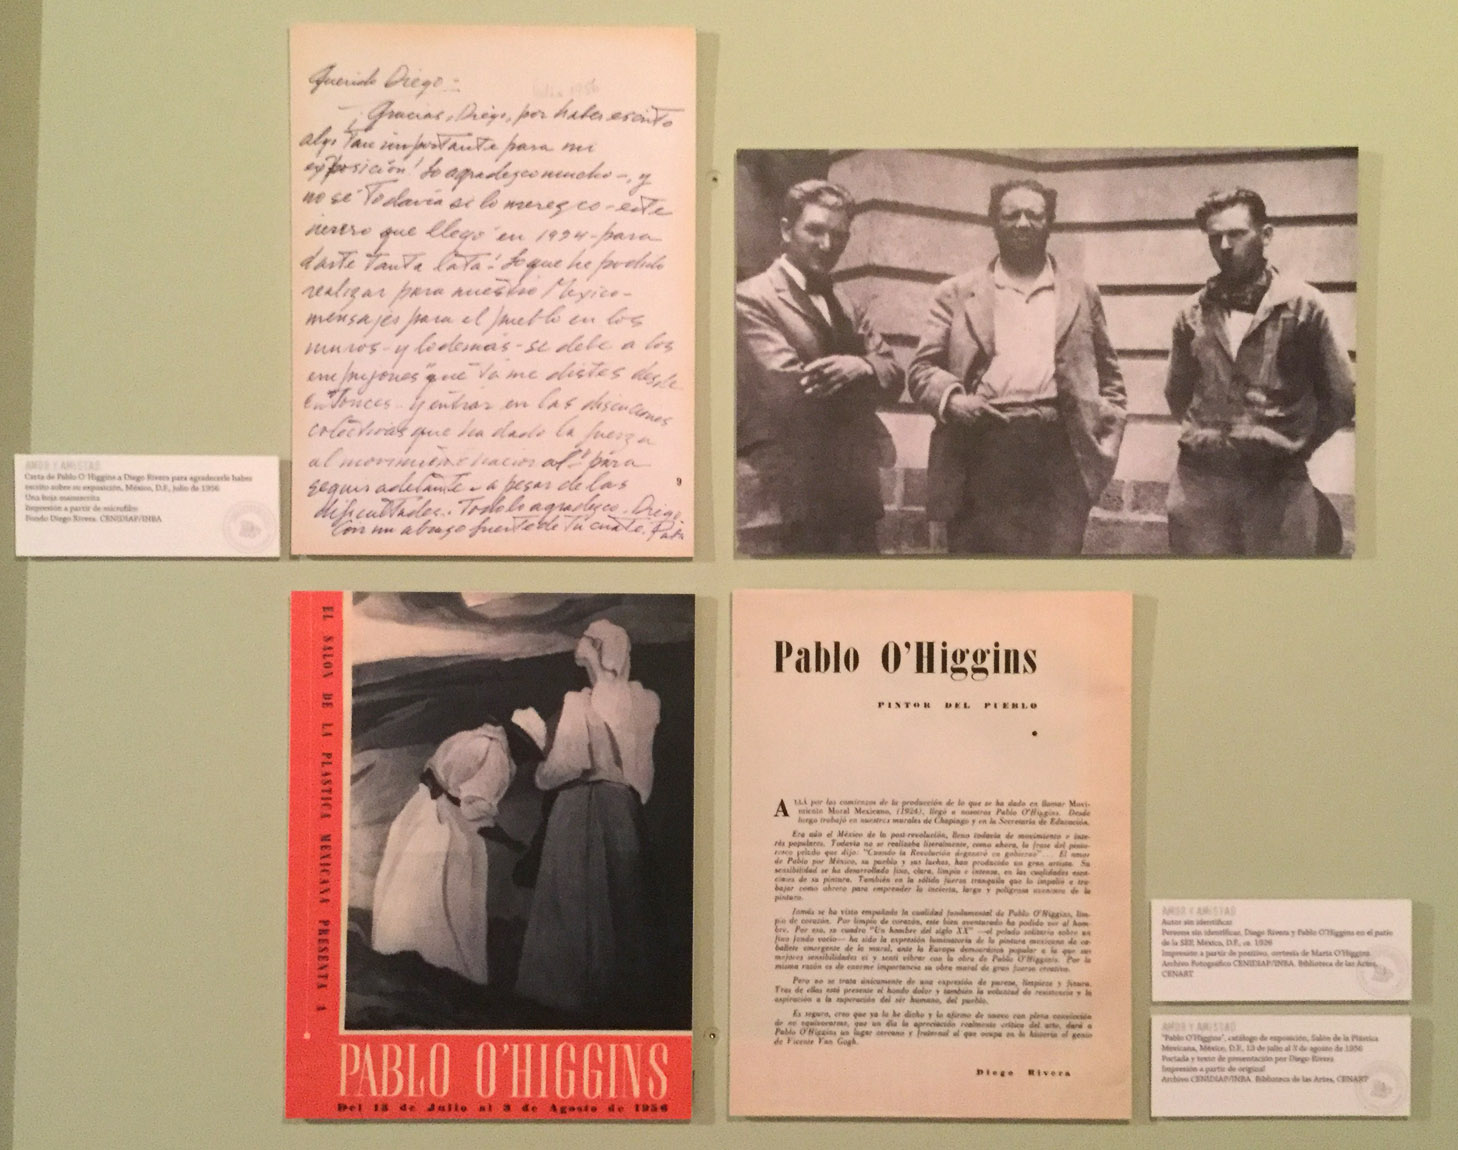 Querido Diego:-
Julio 1956
- Gracias, Diego, por haber escrito
algo tan importante para mi
exposición! Lo agradezco mucho-, y
no sé todavía si lo merezco-este
que llegó en 1924-para
darte tanta lata! Lo que he podido
realizar para nuestro México-
mensajes para el pueblo en los
muros-y lo demás-se debe a los
"empujones" que tú me distes desde
entonces-y entrar en las discusiones
colectivas que ha dado la fuerza
al movimiento nacional! para
seguir adelante-a pesar de las
dificultades. Todo lo agradezco. Diego
Con un abrazo fuerte de tu cuate. Pablo
9
AMOR Y AMISTAD
Carta de Pablo O'Higgins a Diego Rivera para agradecerle haber
escrito sobre su exposición, México, D.F., julio de 1956
Una hoja manuscrita
Impresión a partir de microfilm
Fondo Diego Rivera. CENIDIAP/INBA
EL SALON DE LA PLASTICA MEXICANA PRESENTA A
PABLO O'HIGGINS
Del 13 de Julio al 3 de Agosto de 1956
Pablo O'Higgins
PINTOR DEL PUEBLO
ALLÁ por los comienzos de la producción de lo que se ha dado en llamar Movi-
miento Mural Mexicano, (1924), llegó a nosotros Pablo O'Higgins. Desde
luego trabajó en nuestros murales de Chapingo y en la Secretaría de Educación.
Era aún el México de la post-revolución, lleno todavía de movimiento e inte-
rés populares. Todavía no se realizaba literalmente, como ahora, la frase del pinto-
resco pelado que dijo: "Cuando la Revolución degeneró en gobierno"... El amor
de Pablo por México, su pueblo y sus luchas, han producido un gran artista. Su
sensibilidad se ha desarrollado fina, clara, limpia e intensa, en las cualidades esen-
ciales de su pintura. También en la sólida fuerza tranquila que lo impulsó a tra-
bajar como obrero para emprender la incierta, larga y peligrosa aventura de la
pintura.
Jamás se ha visto empañada la cualidad fundamental de Pablo O'Higgins, lim-
pio de corazón. Por limpio de corazón, este bien aventurado ha podido ver al hom-
bre. Por eso, su cuadro "Un hombre del siglo XX" —el pelado solitario sobre un
fino fondo vacío— ha sido la expresión luminatoria de la pintura mexicana de ca-
ballete emergente de la mural, ante la Europa democrática popular a la que sus
mejores sensibilidades vi y sentí vibrar con la obra de Pablo O'Higgins. Por la
misma razón es de enorme importancia su obra mural de gran fuerza creativa.
Pero no se trata únicamente de una expresión de pureza, limpieza y finura.
Tras de ellas está presente el hondo dolor y también la voluntad de resistencia y la
aspiración a la superación del ser humano, del pueblo.
Es seguro, creo que ya lo he dicho y lo afirmo de nuevo con plena convicción
de no equivocarme, que un día la apreciación realmente crítica del arte, dará a
Pablo O'Higgins un lugar cercano y fraternal al que ocupa en la historia el genio
de Vicente Van Gogh.
Diego Rivera
AMOR Y AMISTAD
Autor sin identificar
Persona sin identificar, Diego Rivera y Pablo O'Higgins en el patio
de la SEP, México, D.F., ca. 1926
Impresión a partir de positivo, cortesía de María O'Higgins
Archivo Fotográfico CENIDIAP/INBA. Biblioteca de las Artes,
CENART
AMOR Y AMISTAD
"Pablo O'Higgins", catálogo de exposición, Salón de la Plástica
Mexicana, México, D.F., 13 de julio al 3 de agosto de 1956
Portada y texto de presentación por Diego Rivera
Impresión a partir de original
Archivo CENIDIAP/INBA. Biblioteca de las Artes, CENART